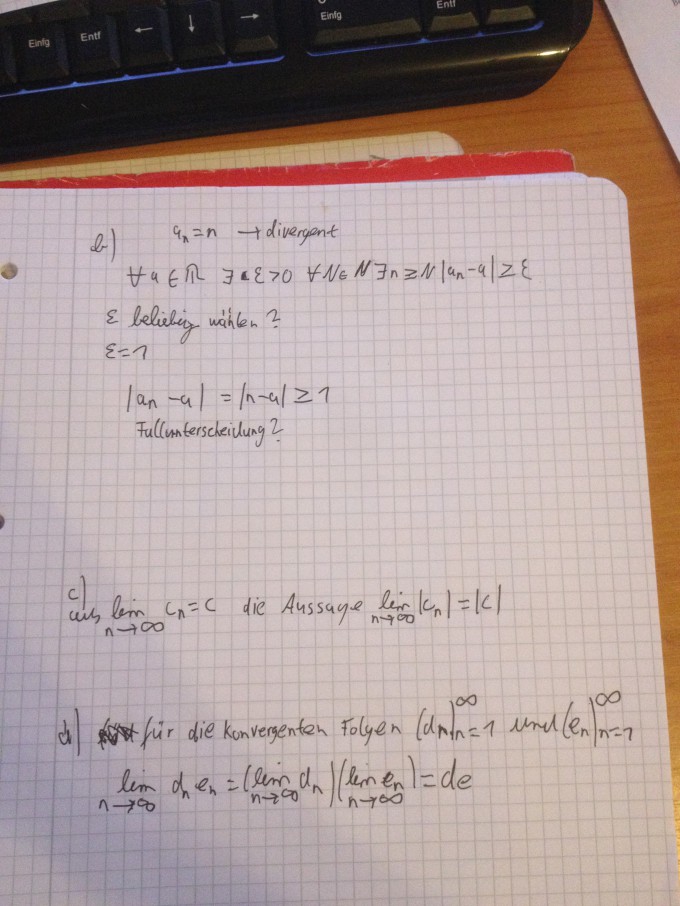 Einfg Entf ← ↓ → Einfg Entf
b) aₙ=n → divergent
∀a∈ℝ ∃ε>0 ∀N∈ℕ ∃n≥N |aₙ-a|≥ε
ε beliebig wählen?
ε=1
|aₙ-a| = |n-a| ≥ 1
Fallunterscheidung?
c)
aus lim n→∞ cₙ=c die Aussage lim n→∞ |cₙ|=|c|
d) für die konvergenten Folgen (dₙ)ₙ₌₁^∞ und (eₙ)ₙ₌₁^∞
lim n→∞ dₙeₙ = (lim n→∞ dₙ)(lim n→∞ eₙ) = de